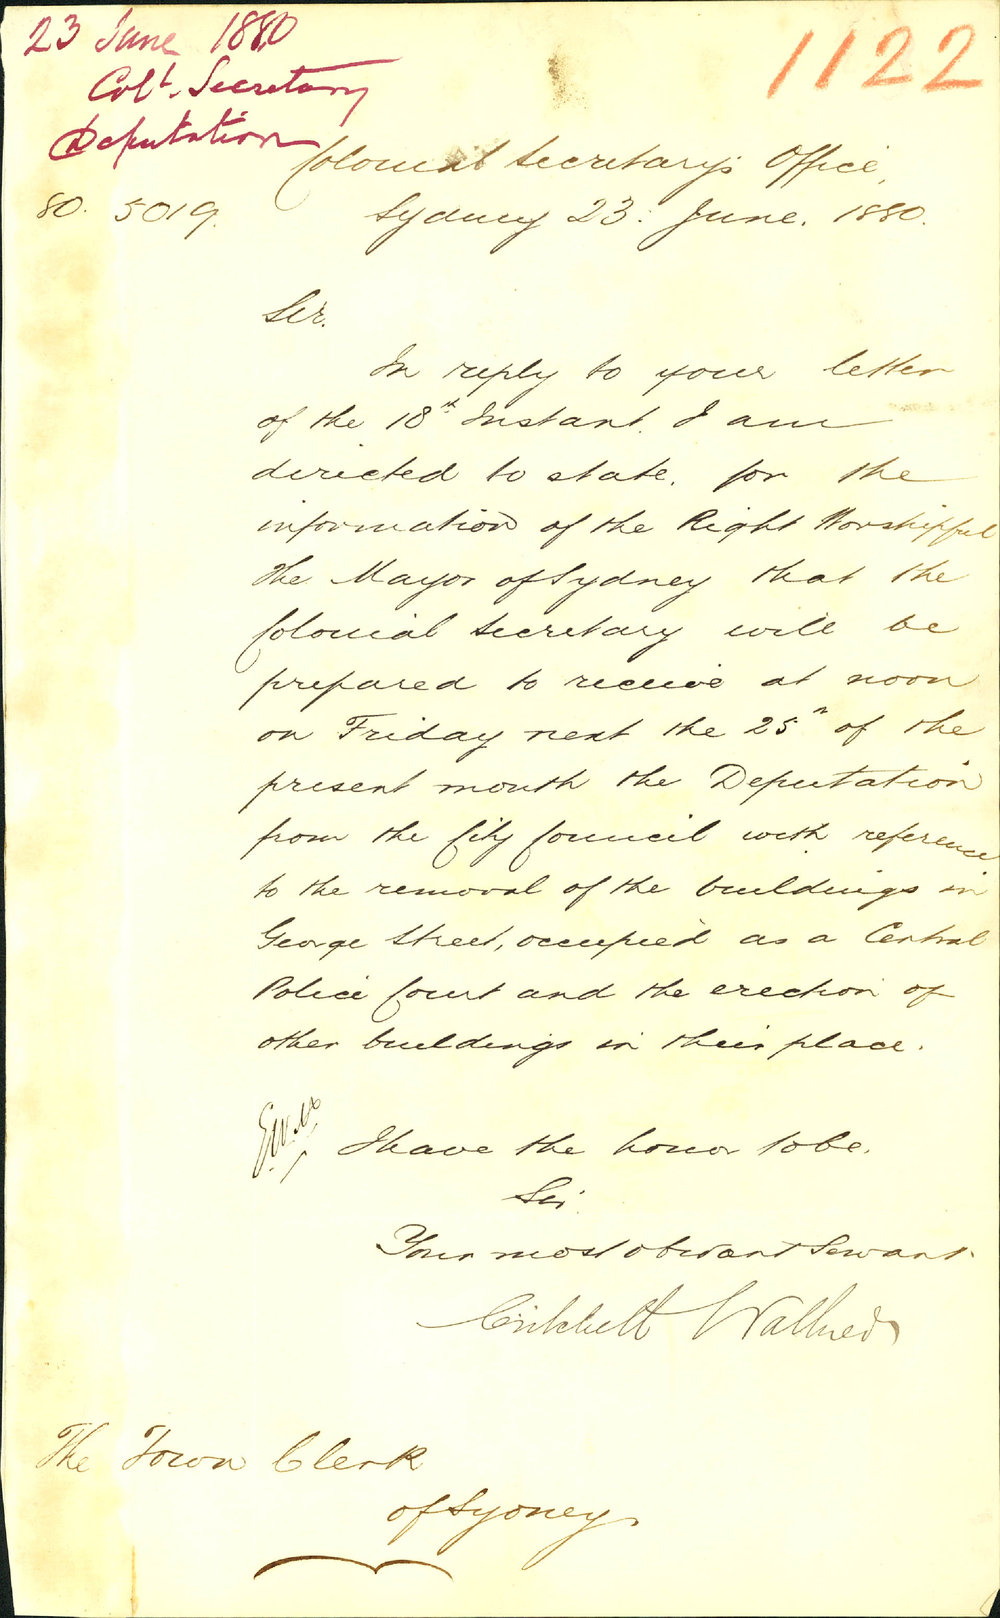 23 June 1880
Col<sup>l</sup>. Secretary
Deputation
1122
Colonial Secretary's Office,
80. 5019.
Sydney 23: June. 1880.
Sir.
In reply to your letter
of the 18th Instant. I am
directed to state, for the
information of the Right Worshipful
the Mayor of Sydney that the
Colonial Secretary will be
prepared to receive at noon
on Friday next the 25" of the
present month the Deputation
from the City Council with reference
to the removal of the buildings in
George Street, occupied as a Central
Police Court and the erection of
other buildings in their place.
I have the honor to be,
Sir.
Your most obedient Servant.
Critchett Walker
The Town Clerk
of Sydney